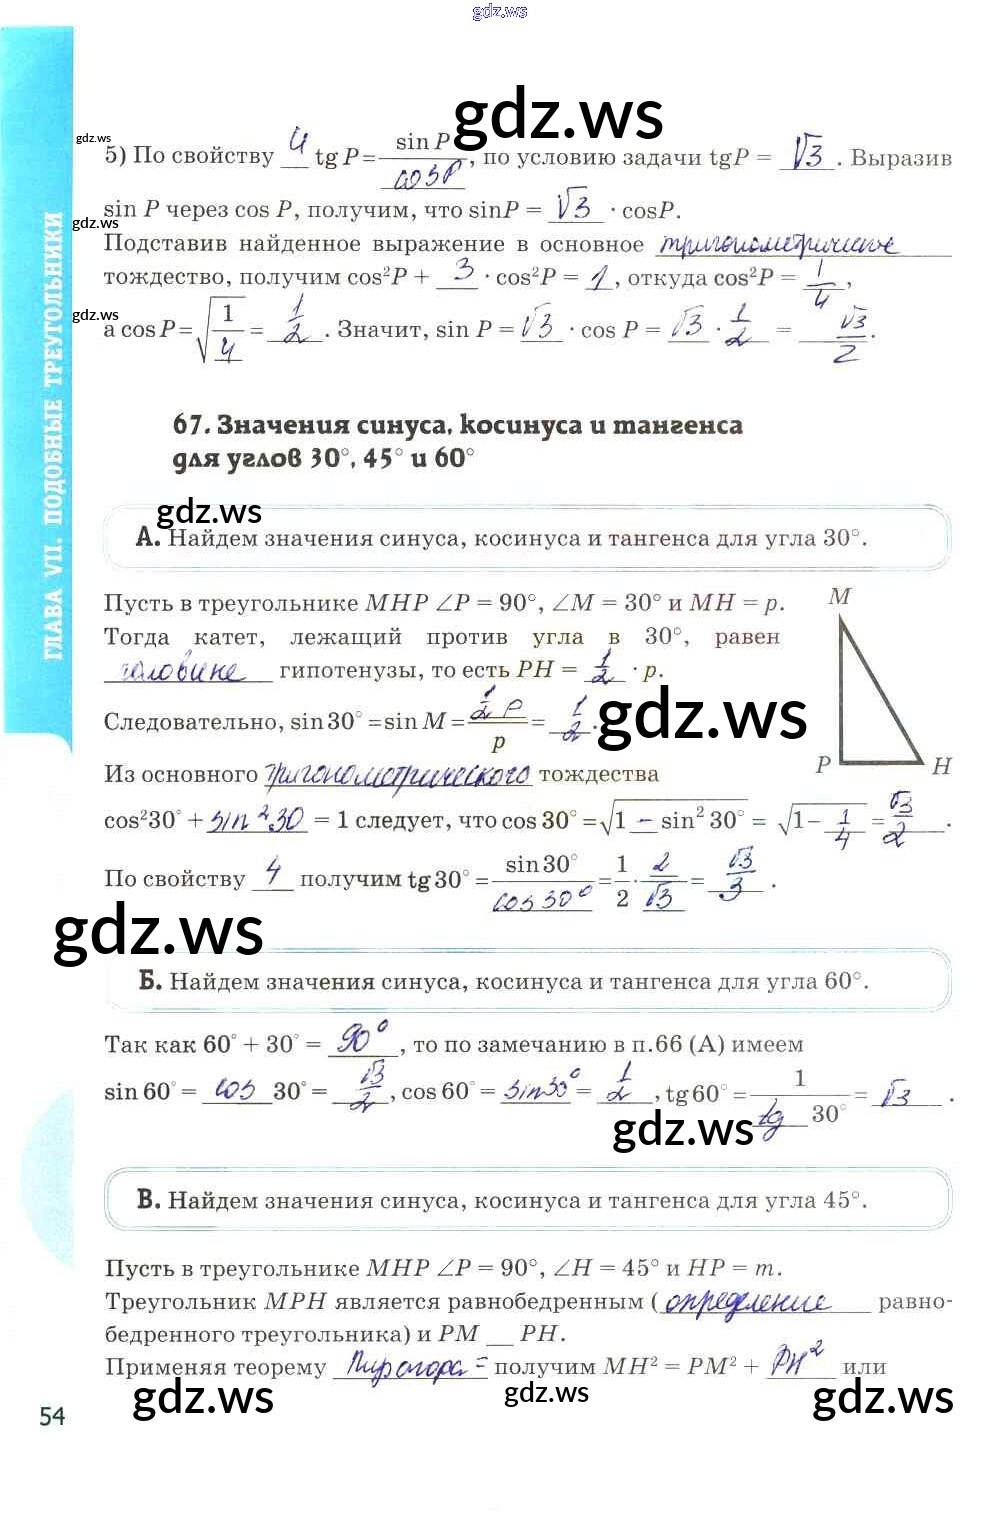 gdz.ws
gdz.ws
gdz.ws
5) По свойству 4 tg P = sin P / cos P, по условию задачи tgP = √3. Выразив
sin P через cos P, получим, что sinP = √3 · cosP.
gdz.ws
Подставив найденное выражение в основное тригонометрическое
тождество, получим cos²P + 3 · cos²P = 1, откуда cos²P = 1/4,
gdz.ws
а cos P = √1/4 = 1/2. Значит, sin P = √3 · cos P = √3 · 1/2 = √3/2.
67. Значения синуса, косинуса и тангенса
для углов 30°, 45° и 60°
gdz.ws
А. Найдем значения синуса, косинуса и тангенса для угла 30°.
Пусть в треугольнике MHP ∠P = 90°, ∠M = 30° и MH = p.
Тогда катет, лежащий против угла в 30°, равен
половине гипотенузы, то есть PH = 1/2 · p.
Следовательно, sin30° = sin M = 1/2 p / p = 1/2.
gdz.ws
M
P
H
Из основного тригонометрического тождества
cos²30° + sin²30 = 1 следует, что cos 30° = √1 − sin² 30° = √1 − 1/4 = √3/2.
По свойству 4 получим tg30° = sin30° / cos 30° = 1/2 · 2/√3 = √3/3.
gdz.ws
Б. Найдем значения синуса, косинуса и тангенса для угла 60°.
Так как 60° + 30° = 90°, то по замечанию в п.66 (А) имеем
sin 60° = cos 30° = √3/2, cos 60° = sin30° = 1/2, tg60° = 1 / tg 30° = √3.
gdz.ws
В. Найдем значения синуса, косинуса и тангенса для угла 45°.
Пусть в треугольнике MHP ∠P = 90°, ∠H = 45° и HP = m.
Треугольник MPH является равнобедренным (определение равно-
бедренного треугольника) и PM __ PH.
Применяя теорему Пифагора = получим MH² = PM² + PH² или
gdz.ws
gdz.ws
gdz.ws
54
ГЛАВА VII. ПОДОБНЫЕ ТРЕУГОЛЬНИКИ